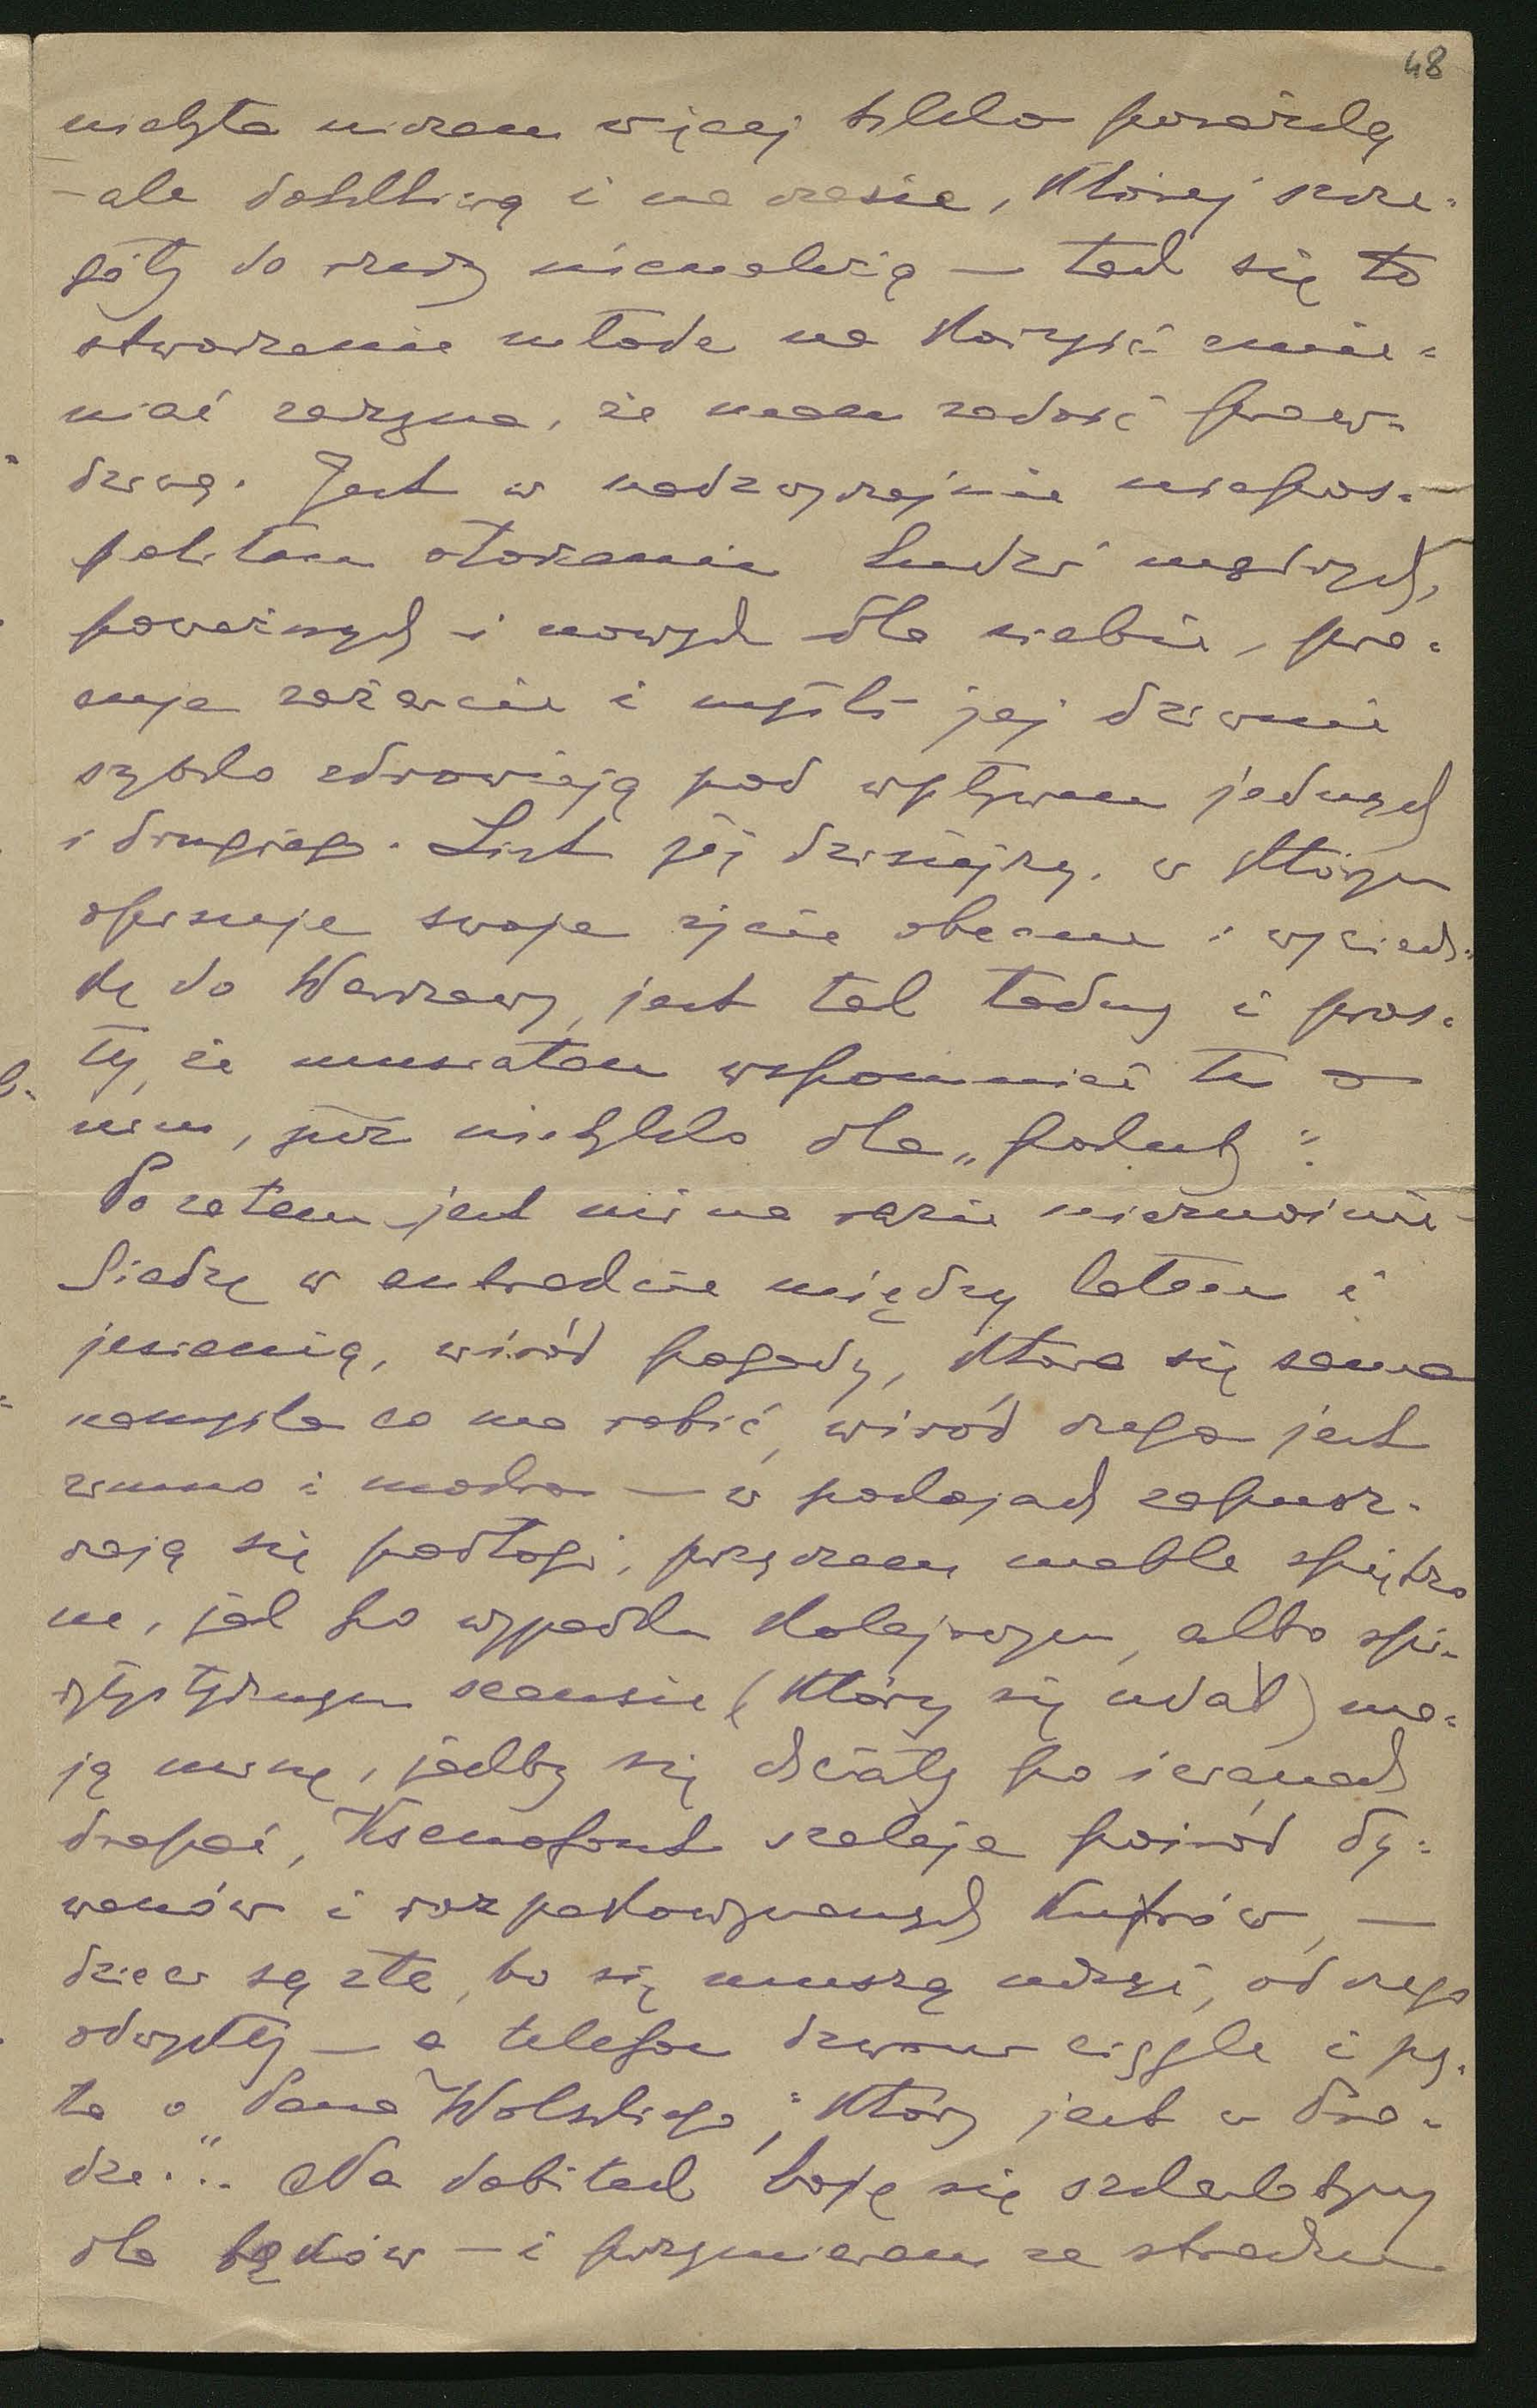 48
więcej tylko poważlą
- ale dotkliwą i na czasie, której szcze=
góły do rzeczy nienależą — tak się to
stworzenie młode na korzyść zmie=
niać zaczyna, że mam radość praw=
dziwą. Jest w nadzwyczajnie niepos=
politem otoczeniu ludzi mądrych,
poważnych i nowych dla siebie, pra=
cuje zażarcie i myśli jej dziwnie
szybko zdrowieją pod wpływem jednych
i drugiego. List jej dzisiejszy, w którym
opisuje swoje życie obecne i wyciecz=
kę do Warszawy, jest tak ładny i pros=
ty, że musiałam wspomnieć tu o
nim, już nietylko dla „pokuty":
Po zatem jest mi na razie nieznośnie
Siedzę w antrakcie między latem i
jesienią, wśród pogody, która się sama
namyśla co ma robić, wśród czego jest
zimno i mokro — w pokojach zapusz=
czają się podłogi, przyczem meble spiętrzo
ne, jak po wypadku kolejowym, albo spi=
rytystycznym seansie (który się udał) ma=
ją minę, jakby się chciały po ścianach
drapać, Ksenofont szaleje pośród dy=
wanów i rozpakowywanych kufrów, —
dzieci są złe, bo się muszą uczyć, od czego
odwykły — a telefon dzwoni ciągle i py=
ta o „Pana Wolskiego, który jest w Pra=
dze.". Na dobitek boję się szkarlatyny
dla bąków — i przymieram ze strachu